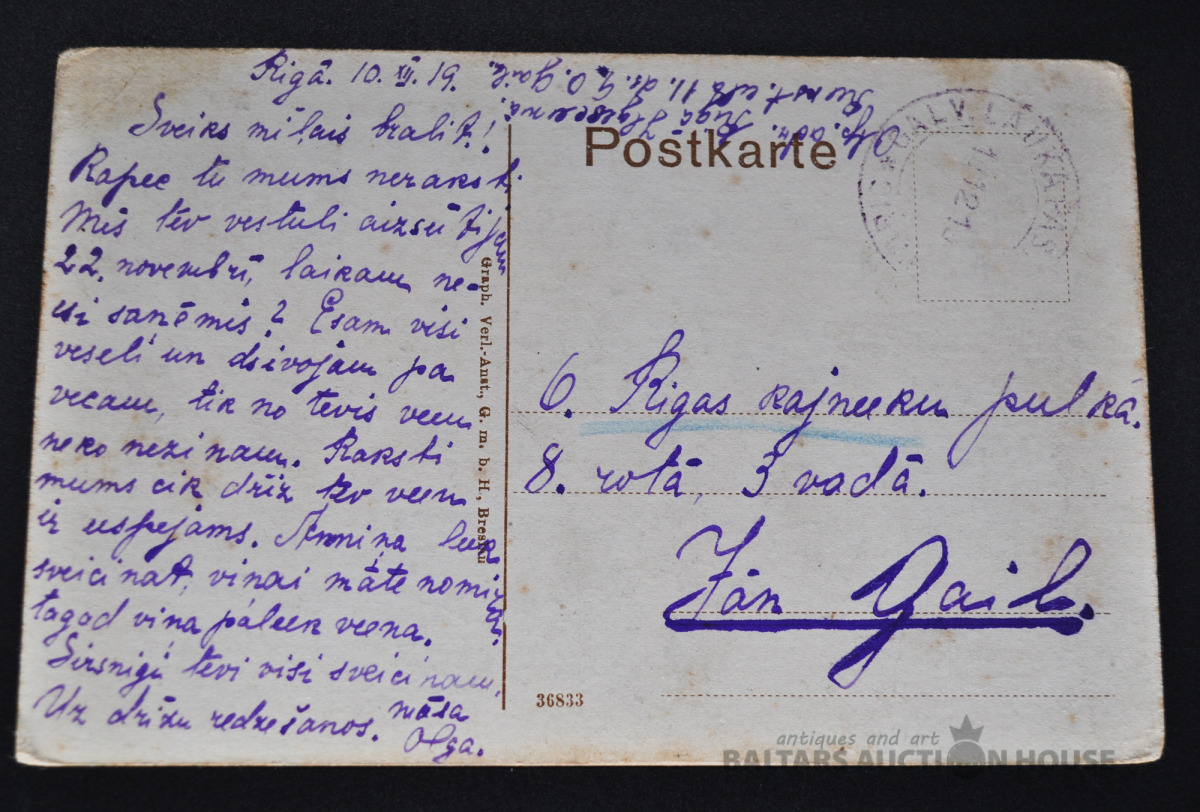 Rīgā. 10. XII. 19.
Sveiks mīļais bralīt!
Kapec tu mums neraksti
Mēs tēv vestuli aizsūtijam
22. novembrī, laikam ne-
esi saņēmis? Esam visi
veseli un dsīvojam pa
vecam, tik no tevis veen
neko nezinam. Raksti
mums cik drīz ko veen
ir uespejams. Anniņa leek
sveicinat, viņai māte nomira,
tagad viņa paleek veena.
Sirsnigi tevi visi sveicinam,
Uz drīzu redzešanos. māsa
Olga.
Postkarte
Graph. Verl.-Anst., G. m. b. H., Breslau
6. Rigas kajneeku pulkā.
8. rotā, 3 vadā.
Jān Gail.
36833
antiques and art
BALTARS AUCTION HOUSE